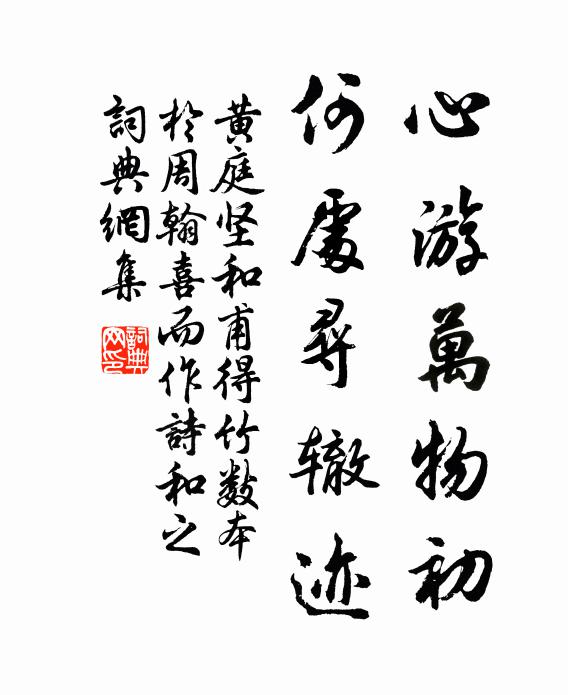 心游萬物初
何處尋辙迹
黄庭坚和甫得竹数本
於周翰喜而作詩和之
詞典網集
詞典
网印